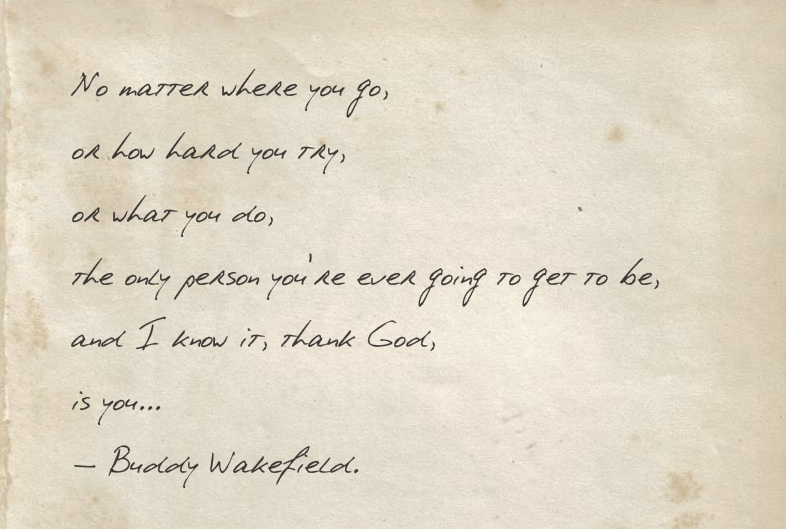 No matter where you go,
or how hard you try,
or what you do,
the only person you're ever going to get to be,
and I know it, thank God,
is you...
– Buddy Wakefield.